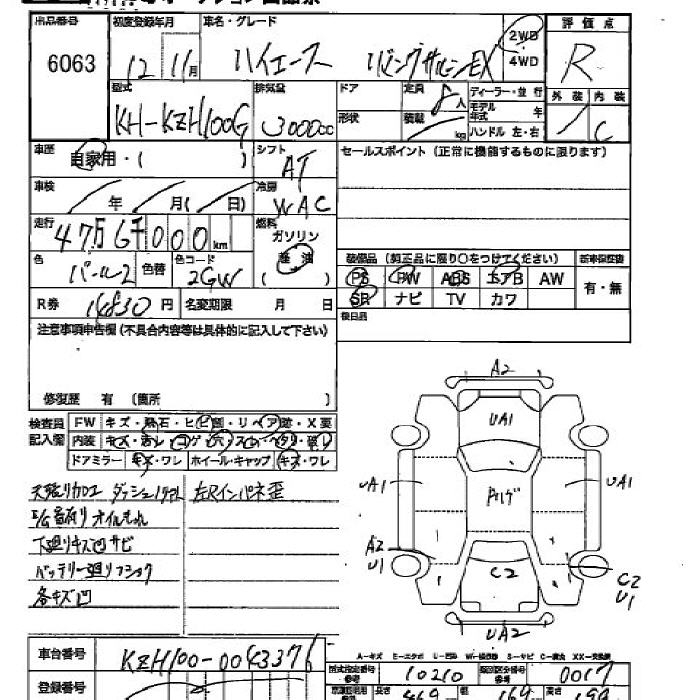 出品番号 初度登録年月 車名・グレード 評価点
6063 12年 11月 ハイエース リビングサルーンEX 2WD 4WD R
型式 排気量 ドア 定員 ディーラー・並行 外装 内装
KH-KZH100G 3000cc 形状 8人 積載 kg モデル年式 年 ハンドル 左・右 C
車歴 自家用・( ) シフト AT セールスポイント (正常に機能するものに限ります)
車検 年 月( 日) 冷房 WAC
走行 47万6千000km 燃料 ガソリン 軽油 ( )
装備品 (純正品に限り○をつけてください) 新車保証書
色 パール2 色替 色コード 2GW
PS PW ABS エアB AW 有・無
SR ナビ TV カワ
R券 14830円 名変期限 月 日
後日品
注意事項申告欄(不具合内容等は具体的に記入して下さい)
修復歴 有 (箇所 )
検査員記入欄 FW キズ・飛石・ヒビ割・リペア跡・X要
内装 キズ・汚レ・コゲ・穴・スレ・ヘタリ・破レ
ドアミラー キズ・ワレ ホイール・キャップ キズ・ワレ
左Rインパネ歪
E/G音有り オイルもれ
下廻りキズ凹サビ
各キズ凹
A2
UA1
UA1 UA1
A2 U1
C2
C2 U1
UA2
A-キズ E-エクボ U-凹み W-補修跡 S-サビ C-腐食 XX-交換済
車台番号 KZH100-0043376
型式指定番号 参考 10210 類別区分番号 参考 0017
登録番号 長さ 469 幅 169 高さ 199